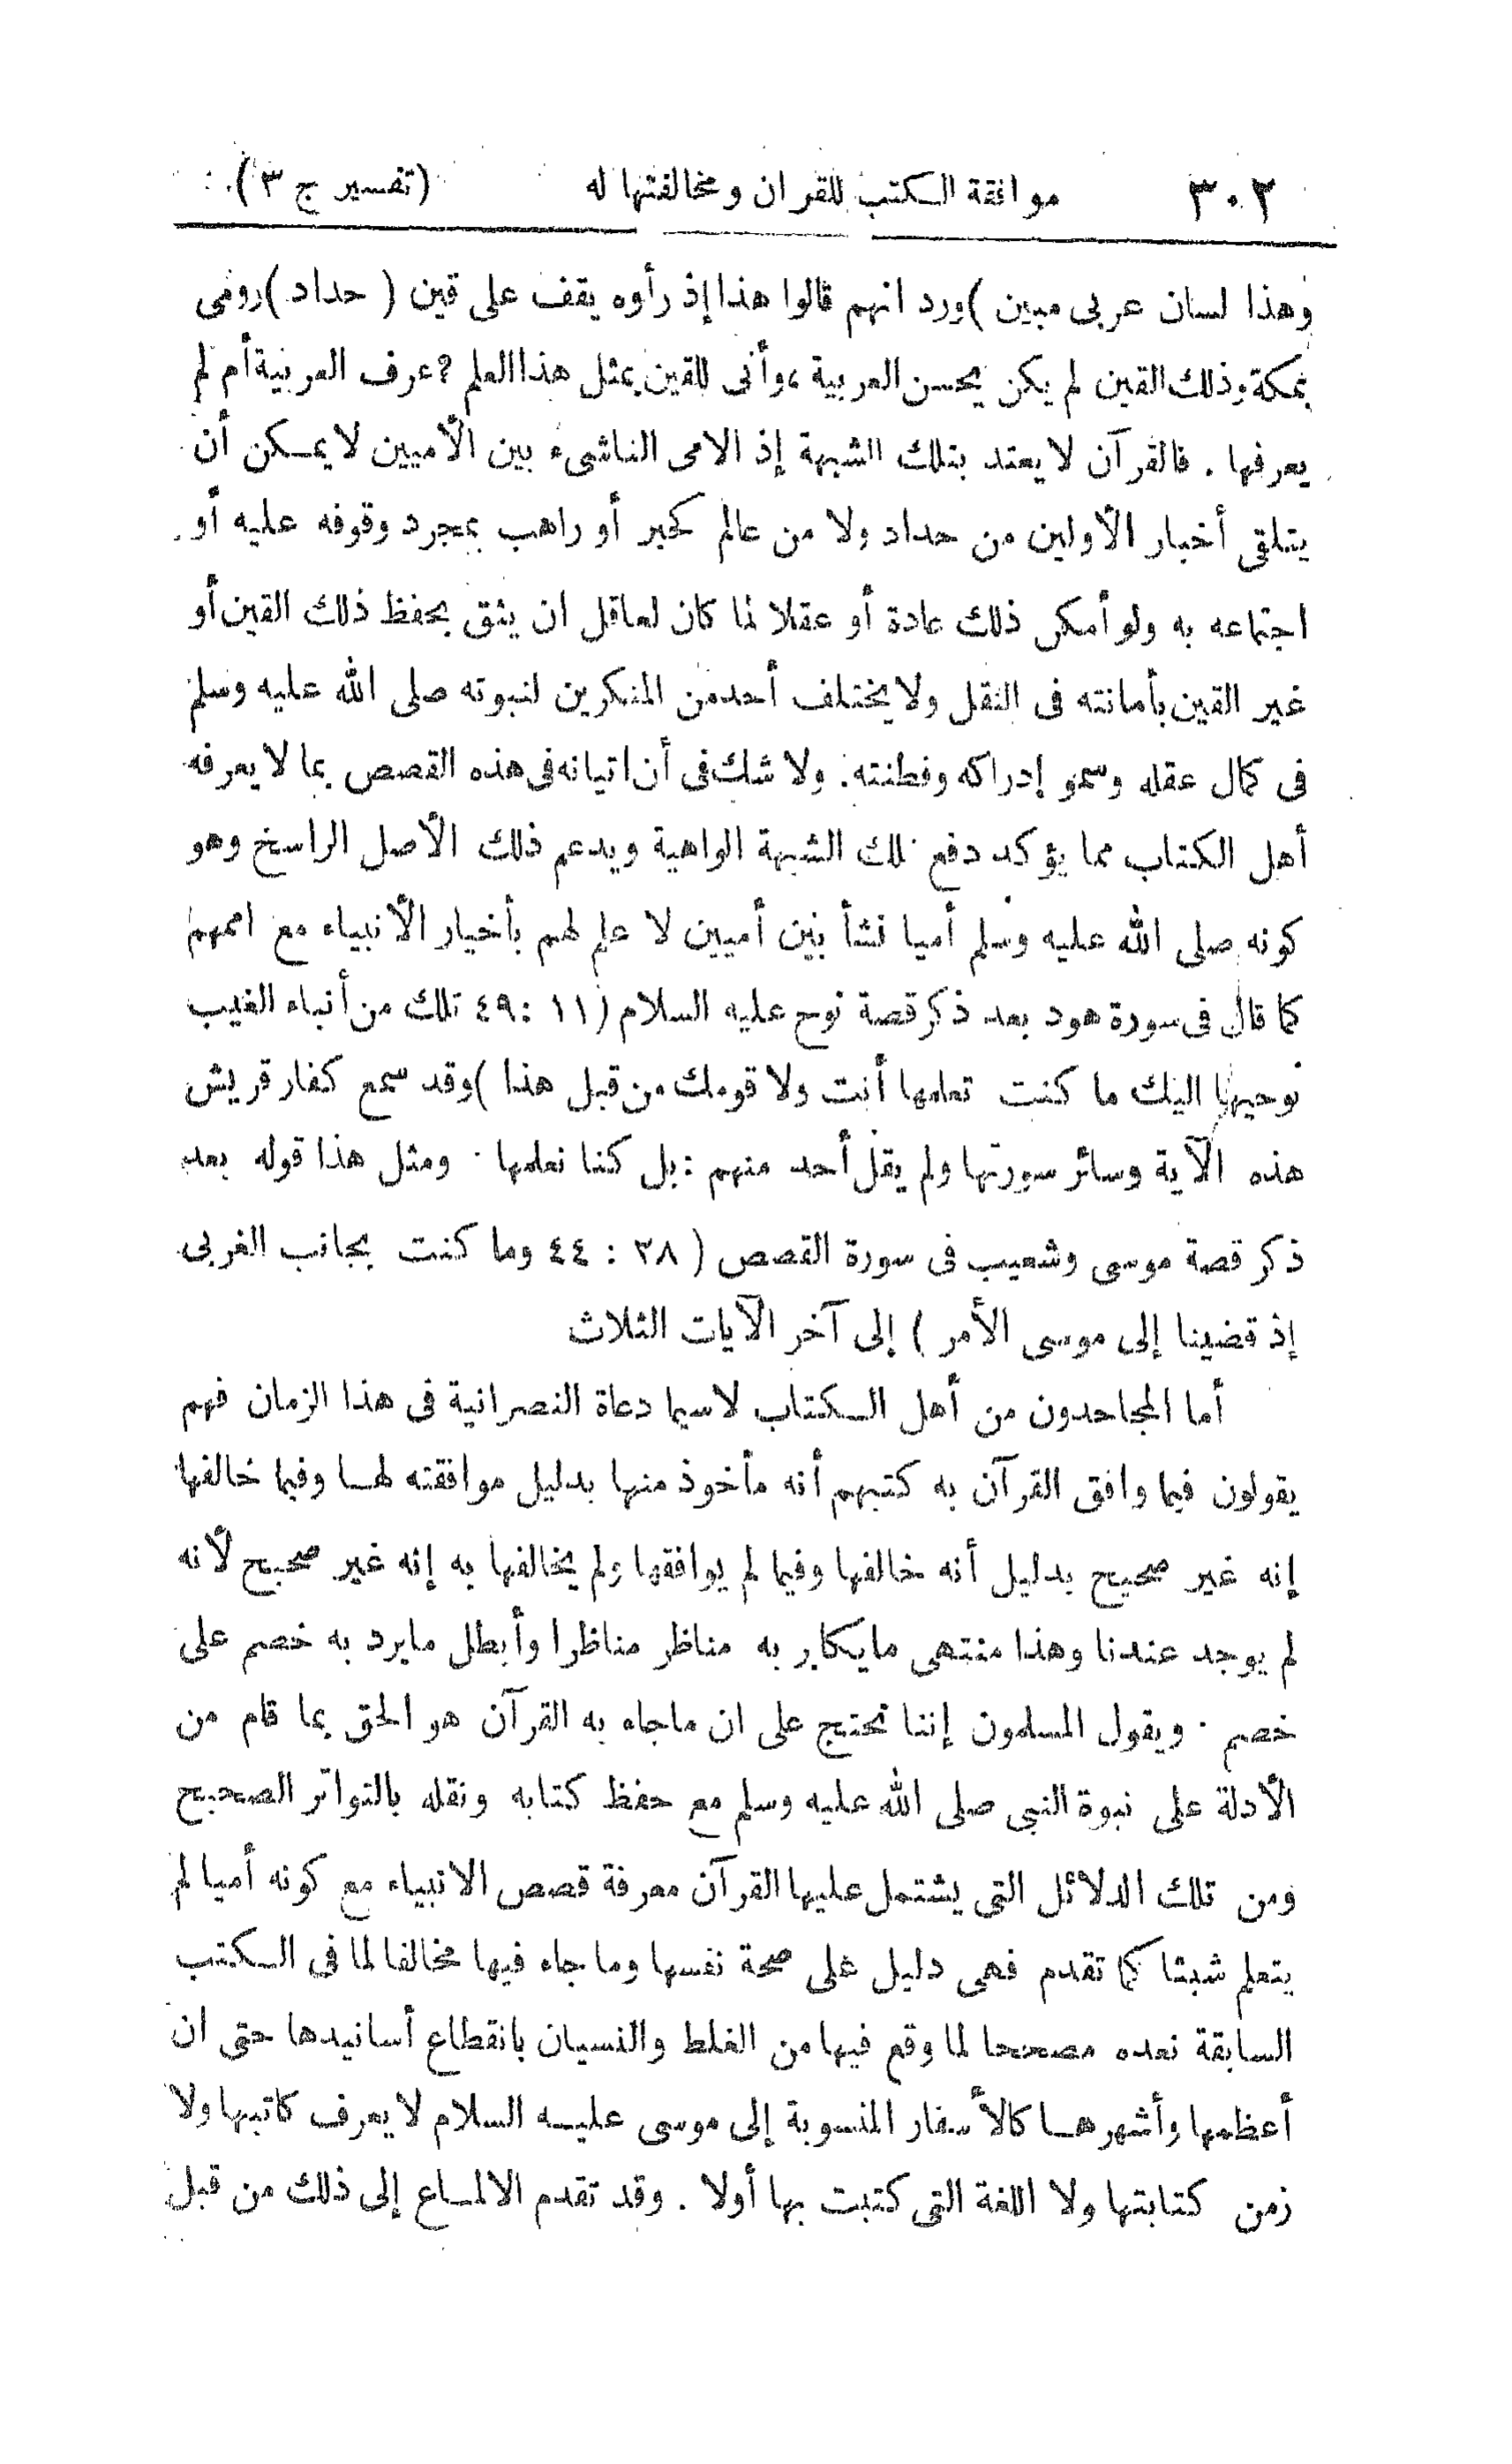 ٣٠٢ موافقة الكتب للقرآن ومخالفتها له (تفسير ج ٣)
وهذا لسان عربى مبين ) ورد انهم قالوا هذا إذ رأوه يقف على قين ( حداد ) رومى
بمكة وذلك القين لم يكن يحسن العربية ، وأنى للقين بمثل هذا العلم ؟ عرف العربية أم لم
يعرفها . فالقرآن لا يعتد بتلك الشبهة إذ الامى الناشىء بين الأميين لا يمكن أن
يتلقى أخبار الأولين من حداد ولا من عالم كحبر أو راهب بمجرد وقوفه عليه أو
اجتماعه به ولو أمكن ذلك عادة أو عقلا لما كان لعاقل ان يثق بحفظ ذلك القين أو
غير القين بأمانته فى النقل ولا يختلف أحد من المنكرين لنبوته صلى الله عليه وسلم
فى كمال عقله وسمو إدراكه وفطنته. ولا شك فى أن اتيانه فى هذه القصص بما لا يعرفه
أهل الكتاب مما يؤكد دفع تلك الشبهة الواهية ويدعم ذلك الأصل الراسخ وهو
كونه صلى الله عليه وسلم أميا نشأ بين أميين لا علم لهم بأخبار الأنبياء مع اممهم
كما قال فى سورة هود بعد ذكر قصة نوح عليه السلام ( ١١ : ٤٩ تلك من أنباء الغيب
نوحيها اليك ما كنت تعلمها أنت ولا قومك من قبل هذا ) وقد سمع كفار قريش
هذه الآية وسائر سورتها ولم يقل أحد منهم : بل كنا نعلمها . ومثل هذا قوله بعد
ذكر قصة موسى وشعيب فى سورة القصص ( ٢٨ : ٤٤ وما كنت بجانب الغربى
إذ قضينا إلى موسى الأمر ) إلى آخر الآيات الثلاث
أما المجاحدون من أهل الكتاب لاسيما دعاة النصرانية فى هذا الزمان فهم
يقولون فيما وافق القرآن به كتبهم أنه مأخوذ منها بدليل موافقته لها وفيما خالفها
إنه غير صحيح بدليل أنه خالفها وفيما لم يوافقها ولم يخالفها به إنه غير صحيح لأنه
لم يوجد عندنا وهذا منتهى مايكابر به مناظر مناظرا وأبطل مايرد به خصم على
خصم . ويقول المسلمون إننا نحتج على ان ماجاء به القرآن هو الحق بما قام من
الأدلة على نبوة النبى صلى الله عليه وسلم مع حفظ كتابه ونقله بالتواتر الصحيح
ومن تلك الدلائل التى يشتمل عليها القرآن معرفة قصص الانبياء مع كونه أميا لم
يتعلم شيئا كما تقدم فهى دليل على صحة نفسها وما جاء فيها مخالفا لما فى الكتب
السابقة نعده مصححا لما وقع فيها من الغلط والنسيان بانقطاع أسانيدها حتى ان
أعظمها وأشهرها كالأسفار المنسوبة إلى موسى عليه السلام لا يعرف كاتبها ولا
زمن كتابتها ولا اللغة التى كتبت بها أولا . وقد تقدم الالماع إلى ذلك من قبل